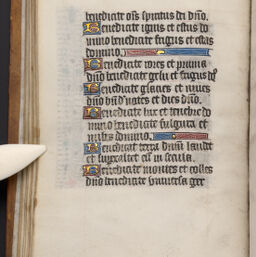 benedicate oms spiritus dei dno.
Benedicite ignis et estus do
mino benedicite frigus et estas
domino.
Benedicite rores et pruina
dno benedicite gelu et frigus dno
Benedicite glacies et nives
dno bnd noctes et dies dno.
Benedicite lux et tenebre do
mino benedicite fulgura et
nubes domino.
Benedicat terra dnm laudet
et superexaltet eum in secula.
Benedicite montes et colles
dno benedicite universa ger